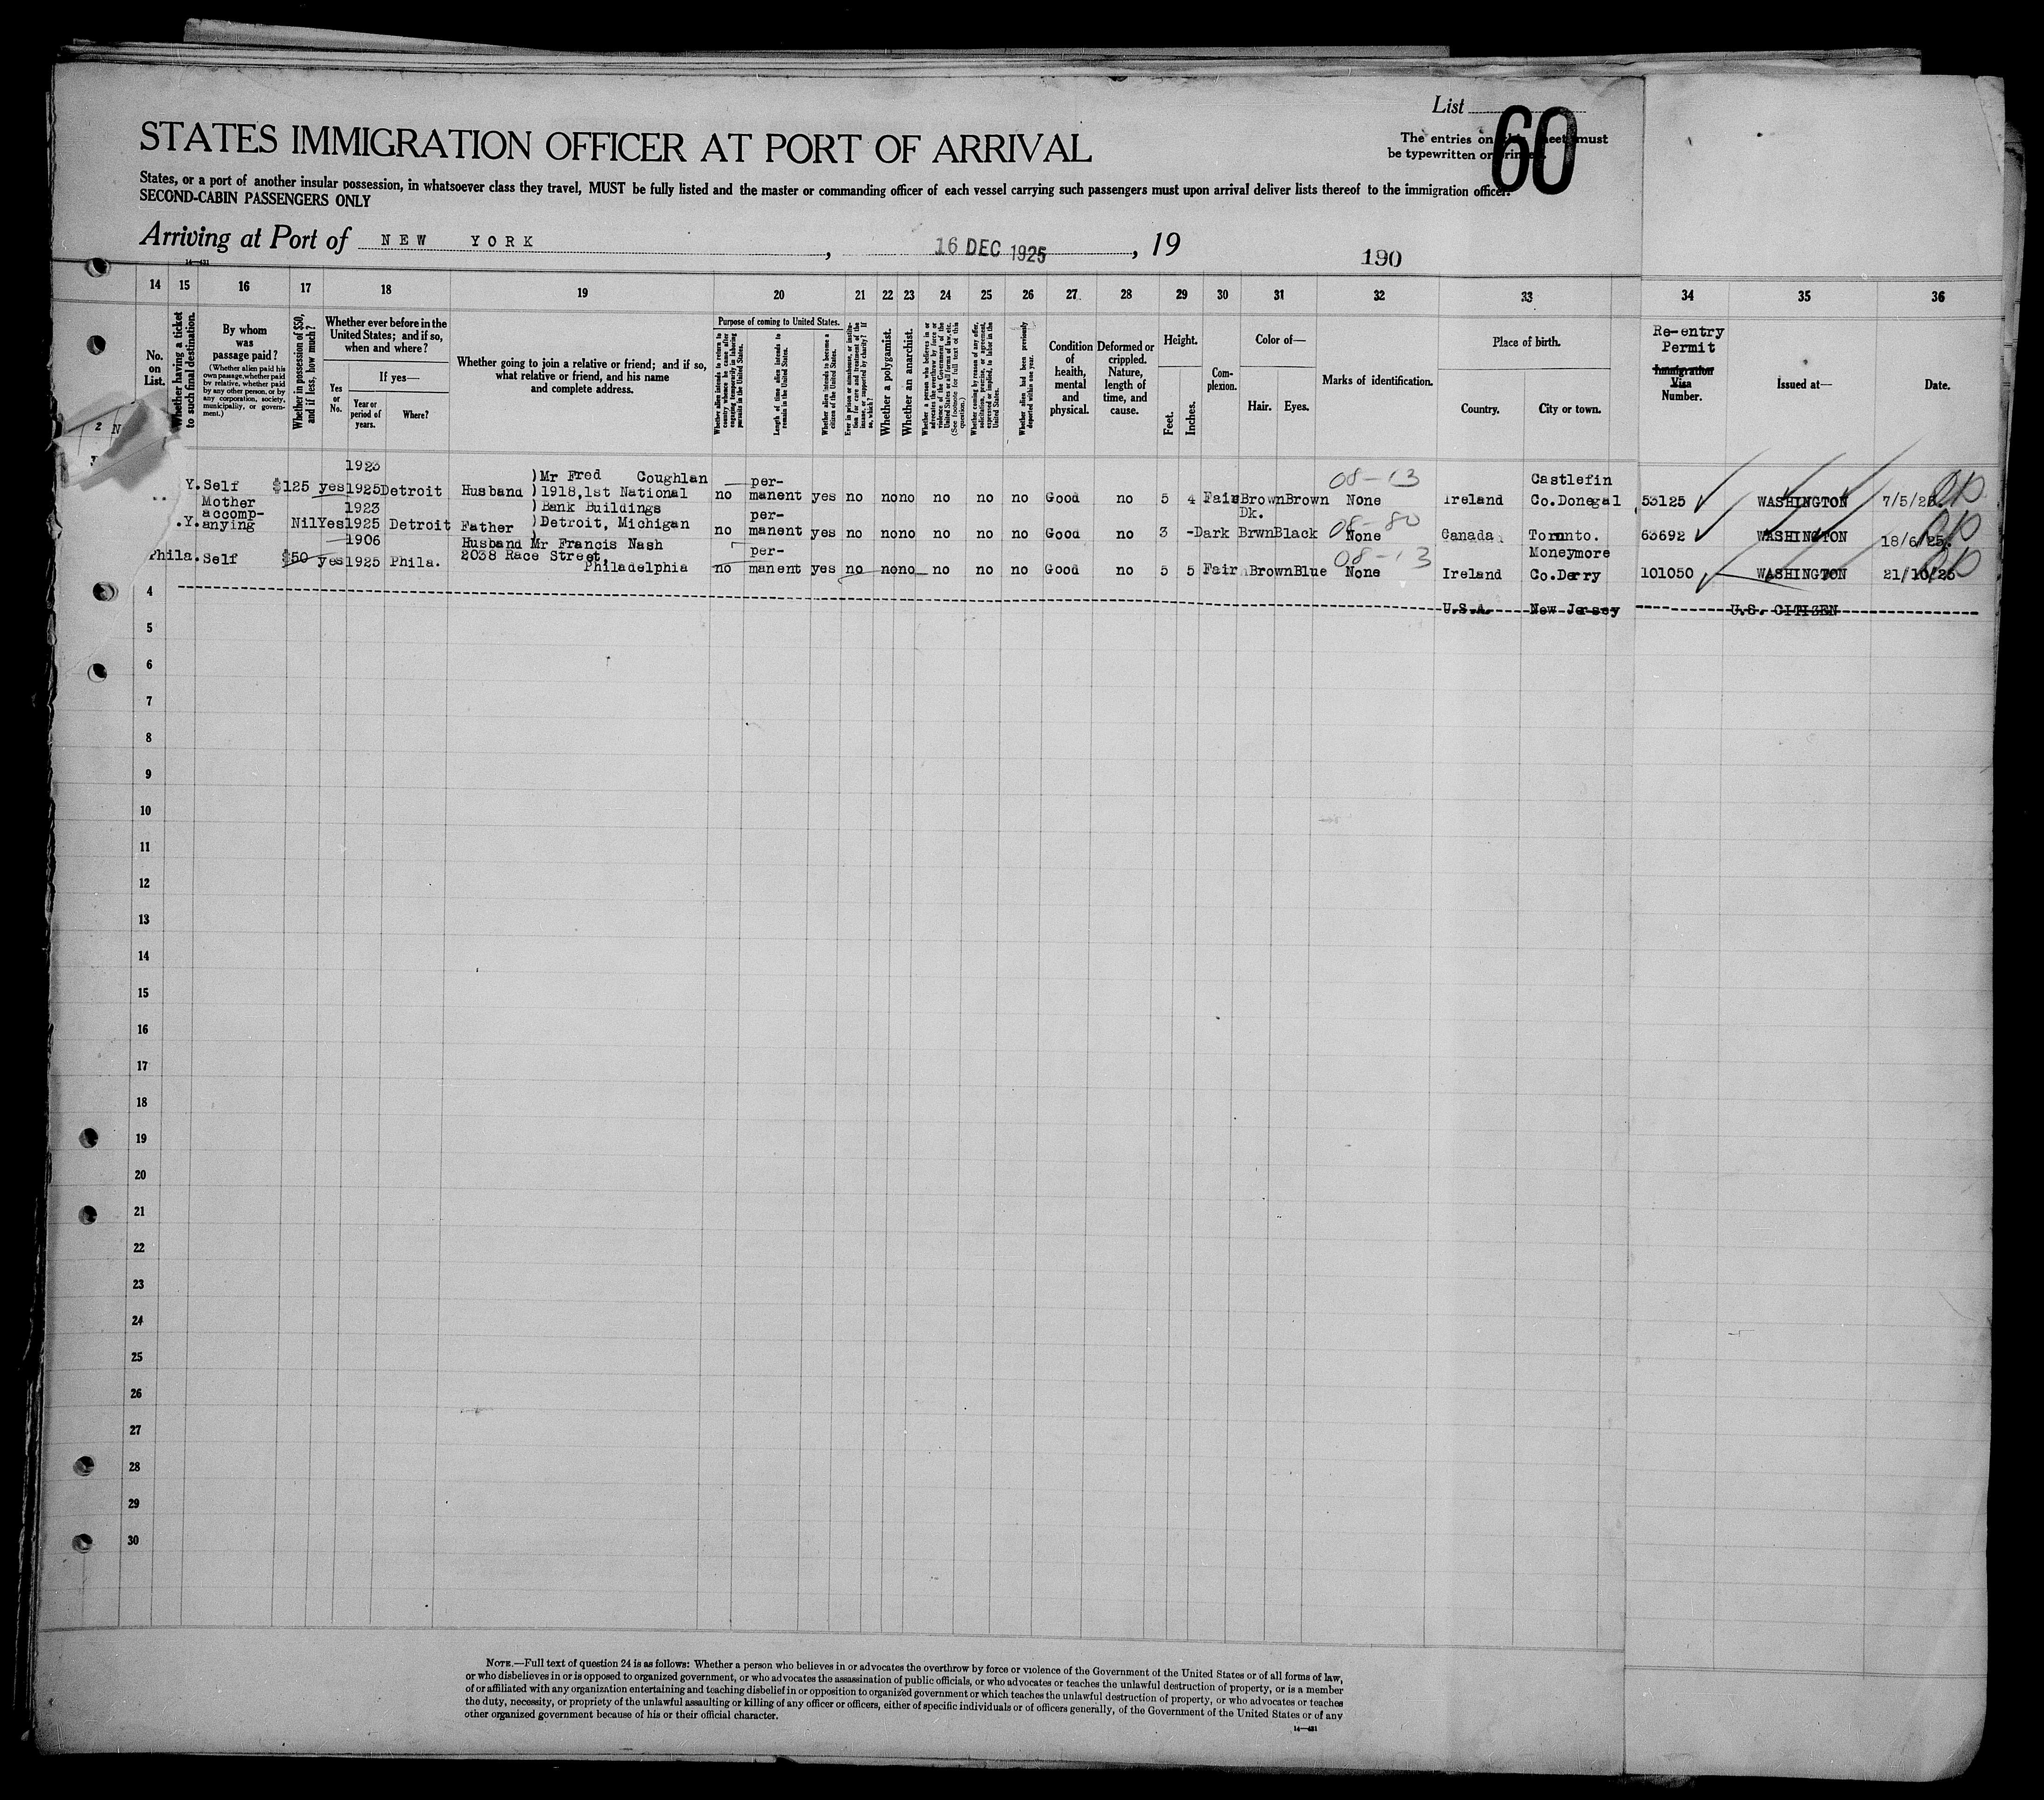 List
60
The entries on this sheet must
be typewritten or printed.
STATES IMMIGRATION OFFICER AT PORT OF ARRIVAL
States, or a port of another insular possession, in whatsoever class they travel, MUST be fully listed and the master or commanding officer of each vessel carrying such passengers must upon arrival deliver lists thereof to the immigration officer.
SECOND-CABIN PASSENGERS ONLY
Arriving at Port of NEW YORK, 16 DEC 1925, 19
190
14—431
14 15 16 17 18 19 20 21 22 23 24 25 26 27 28 29 30 31 32 33 34 35 36
No. on List.
Whether having a ticket to such final destination.
By whom was passage paid?
(Whether alien paid his own passage, whether paid by relative, whether paid by any other person, or by any corporation, society, municipality, or government.)
Whether in possession of $50, and if less, how much?
Whether ever before in the United States; and if so, when and where?
Yes or No.
If yes—
Year or period of years.
Where?
Whether going to join a relative or friend; and if so, what relative or friend, and his name and complete address.
Purpose of coming to United States.
Whether alien intends to return to country whence he came after engaging temporarily in laboring pursuits in the United States.
Length of time alien intends to remain in the United States.
Whether alien intends to become a citizen of the United States.
Ever in prison or almshouse, or institution for care and treatment of the insane, or supported by charity? If so, which?
Whether a polygamist.
Whether an anarchist.
Whether a person who believes in or advocates the overthrow by force or violence of the Government of the United States or all forms of law, etc. (See footnote for full text of this question.)
Whether coming by reason of any offer, solicitation, promise, or agreement, expressed or implied, to labor in the United States.
Whether alien had been previously deported within one year.
Condition of health, mental and physical.
Deformed or crippled. Nature, length of time, and cause.
Height.
Feet.
Inches.
Complexion.
Color of—
Hair.
Eyes.
Marks of identification.
Place of birth.
Country.
City or town.
Re-entry Permit
Immigration Visa Number.
Issued at—
Date.
2 N
Y. Self $125 yes 1923 1925 Detroit Husband )Mr Fred Coughlan no per-manent yes no no no no no no Good no 5 4 Fair Brown Brown 08-13 None Ireland Castlefin Co.Donegal 53125 WASHINGTON 7/5/25
)1918,1st National
)Bank Buildings
.Y. Mother accomp-anying Nil Yes 1923 1925 Detroit Father )Detroit, Michigan no per-manent yes no no no no no no Good no 3 - Dark Dk. Brwn Black 08-80 None Canada Toronto. 63692 WASHINGTON 18/6/25.
Phila. Self $50 yes 1906 1925 Phila. Husband Mr Francis Nash no per-manent yes no no no no no no Good no 5 5 Fair Brown Blue 08-13 None Ireland Moneymore Co.Derry 101050 WASHINGTON 21/10/25
2038 Race Street,
Philadelphia
4 U.S.A. New Jersey U.S. CITIZEN
5
6
7
8
9
10
11
12
13
14
15
16
17
18
19
20
21
22
23
24
25
26
27
28
29
30
NOTE.—Full text of question 24 is as follows: Whether a person who believes in or advocates the overthrow by force or violence of the Government of the United States or of all forms of law,
or who disbelieves in or is opposed to organized government, or who advocates the assassination of public officials, or who advocates or teaches the unlawful destruction of property, or is a member
of or affiliated with any organization entertaining and teaching disbelief in or opposition to organized government or which teaches the unlawful destruction of property, or who advocates or teaches
the duty, necessity, or propriety of the unlawful assaulting or killing of any officer or officers, either of specific individuals or of officers generally, of the Government of the United States or of any
other organized government because of his or their official character.
14—431